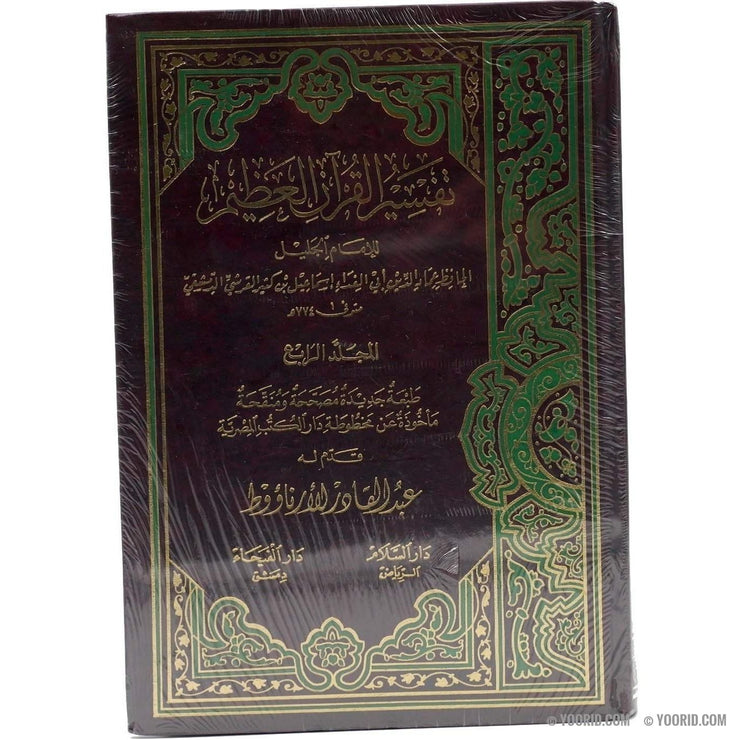 تفسير القرآن العظيم
للإمام الجليل
الحافظ عماد الدين أبي الفداء إسماعيل بن كثير القرشي الدمشقي
متوفى ٧٧٤ هـ
المجلد الرابع
طبعة جديدة مصححة ومنقحة
مأخوذة عن مخطوطة دار الكتب المصرية
قدم له
عبد القادر الأرناؤوط
دار السلام دار الفيحاء
الرياض دمشق
© YOORID.COM © YOORID.COM